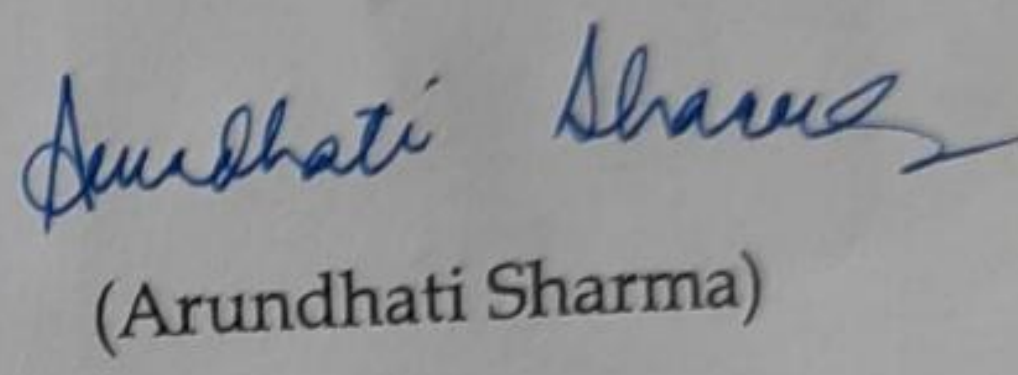 Arundhati Sharma
(Arundhati Sharma)